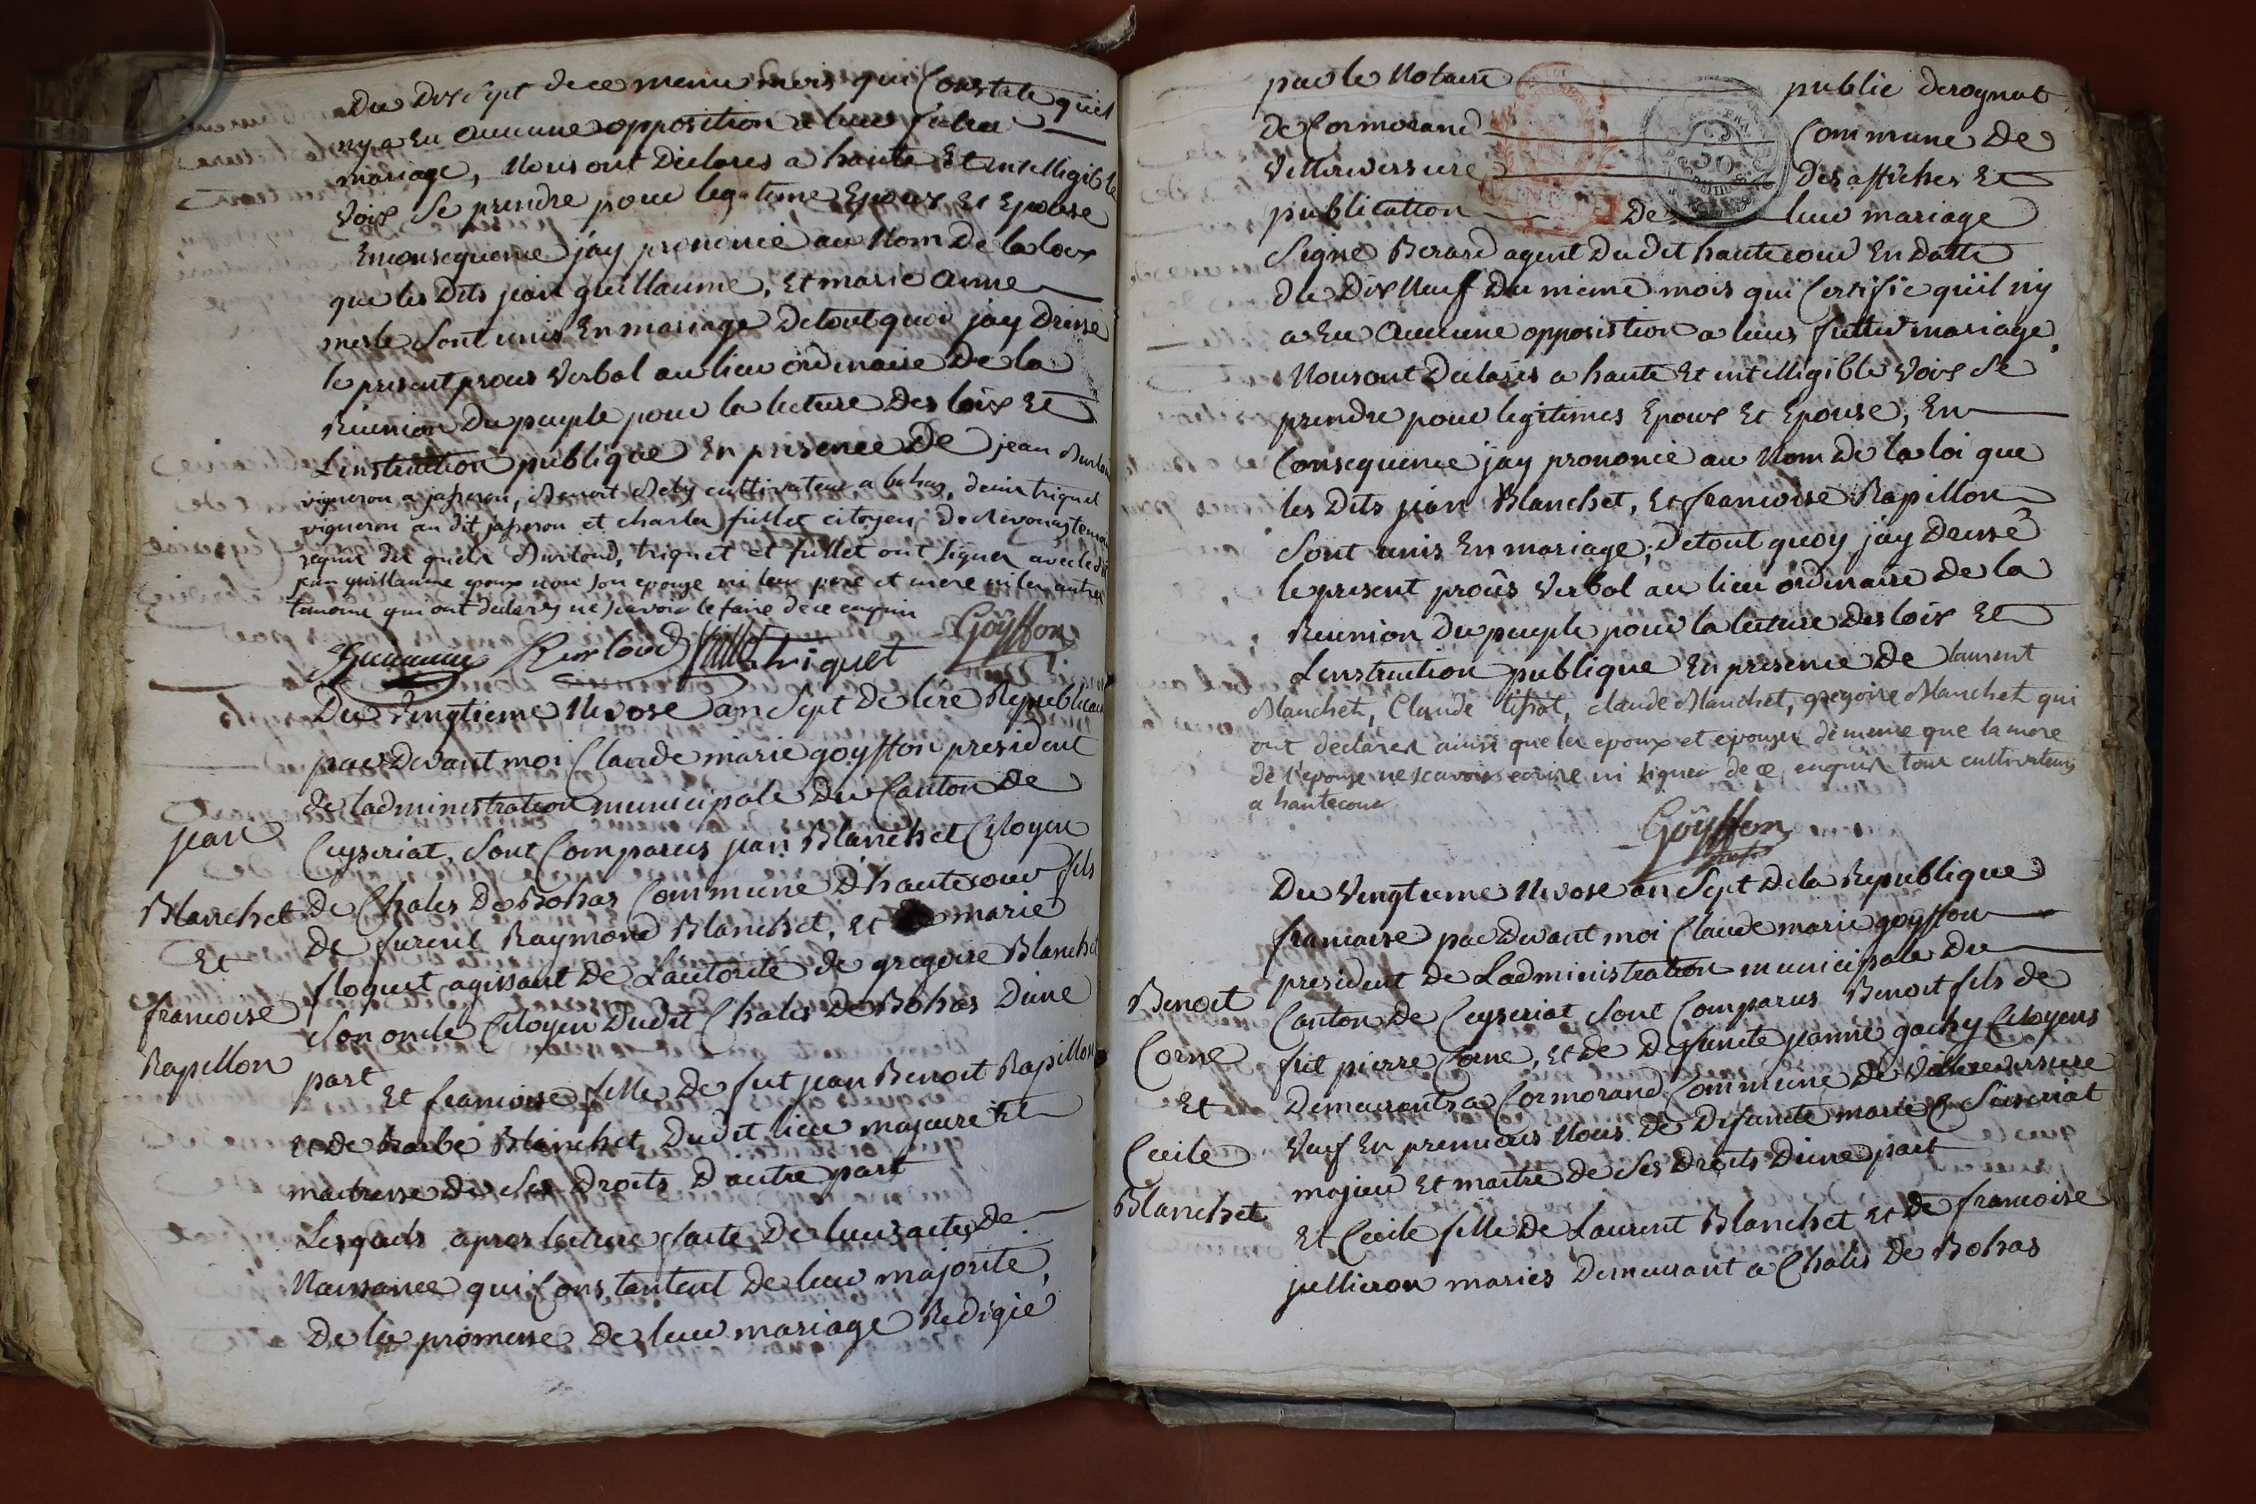 Du Dix Sept de ce meme mois qui Constate quil
ny a Eu Aucune opposition a leur futur
mariage, Nous ont Déclarés a haute Et intelligible
Voix Se prendre pour legitime Epoux Et Epouse
En consequence j'ay prononcé au Nom De la loix
que les Dits jean guillaume, Et marie Anne
merle Sont unis En mariage De tout quoi jay Dressé
le present procès Verbal au lieu ordinaire De la
Reunion Du peuple pour la lecture Des loix Et
L'instruction publique En presence De jean Burlou
vigneron a jasseron, Benoit Deby cultivateur a bohas, denis triquet
vigneron au dit jasseron et charles fuillet citoyen De Revonas temoin
requis des quels Burloud, triquet et fuillet ont Signer avec le dit
jean guillaume epoux non son epouze ni leur pere et mere ni les autres
temoins qui ont declarés ne scavoir le faire de ce enquis
Guillaume Burloud fuillet triquet Goÿffon
Du Vingtieme Nivose an Sept De lère Republicain
par Devant moi Claude marie goyffon president
de l'administration municipale Du Canton De
Ceyseriat, Sont Comparus jean Blanchet Citoyen
jean
de Chales De Bohas Commune D'hautecour fils
Blanchet
De furent Raymond Blanchet, Et marie
Et
floquet agissant De L'autorité de gregoire Blanchet
francoise
Son oncle Citoyen Dudit Chales De Bohas Dune
Rapillon
part
Et francoise fille De fut jean Benoit Rapillon
Et De barbe Blanchet Dudit lieu majeure Et
maitresse De Ses Droits D'autre part
Lesquels apres lecture faite De leurs actes De
Naissance qui Constantent De leur majorité,
De la promesse De leur mariage Redigié
par le Notaire public Derognat
De Cormorand Commune De
Villereversure Des affiches Et
publication De leur mariage
Signé Berard agent Dudit hautecour En Datte
Du Dix Neuf Du meme mois qui Certifie quil ny
a Eu Aucune opposistion a leurs futur mariage,
Nous ont Declarés a haute Et intelligible Voix Se
prendre pour legitimes Epoux Et Epouse, En
Consequence jay prononcé au Nom De la loi que
les Dits jean Blanchet, Et francoise Rapillon
Sont unis En mariage; De tout quoy jay Dressé
le present procés Verbal au lieu ordinaire De la
Reunion Du peuple pour la lecture Des loix Et
L'instruction publique En presence De laurent
Blanchet, Claude tissot, claude Blanchet, gregoire Blanchet qui
ont declarer ainsi que les epoux et epouzer de meme que la mere
de l'epouze ne scavoir ecrire ni signer de ce enquis tous cultivateurs
a hautecour
Goÿffon
Du Vingtieme Nivose an Sept De la Republique
francaise par Devant moi Claude marie goyffon
president De L'administration municipale Du
Benoit
Canton De Ceyseriat Sont Comparus Benoit fils de
Corne
fut pierre Corne, Et De Defuncte jeanne gachy Citoyens
Et
Demeurants a Cormorand Commune De Villereversure
Cecile
Veuf En premieres Nous De Defuncte marie Seiseriat
Blanchet
majeur Et maitre De Ses Droits Dune part
Et Cecile fille De Laurent Blanchet Et De francoise
jullieron mariés Demeurant a Chales De Bohas